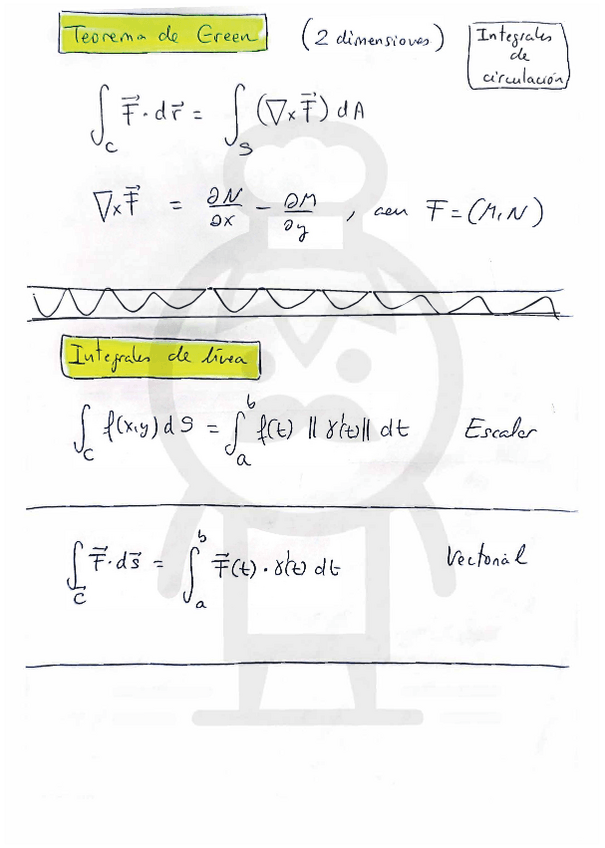 Teorema de Green (2 dimensiones) Integrales de circulación
∫_C F⃗ · dr⃗ = ∫_S (∇ₓF⃗) dA
∇ₓF⃗ = ∂N/∂x − ∂M/∂y , con F = (M, N)
Integrales de línea
∫_C f(x,y) dS = ∫_a^b f(t) ‖γ'(t)‖ dt Escalar
∫_C F⃗ · ds⃗ = ∫_a^b F⃗(t) · γ'(t) dt Vectorial